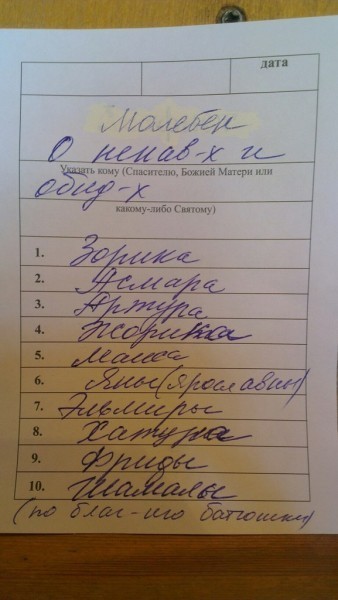 дата
Молебен
О ненав-х и
Указать кому (Спасителю, Божией Матери или
обид-х
какому-либо Святому)
1. Зорика
2. Асмара
3. Артура
4. Жорика
5. Маиса
6. Яны (Ярославны)
7. Эльмиры
8. Хатура
9. Фриды
10. Шамалы
(по благ-нию батюшки)